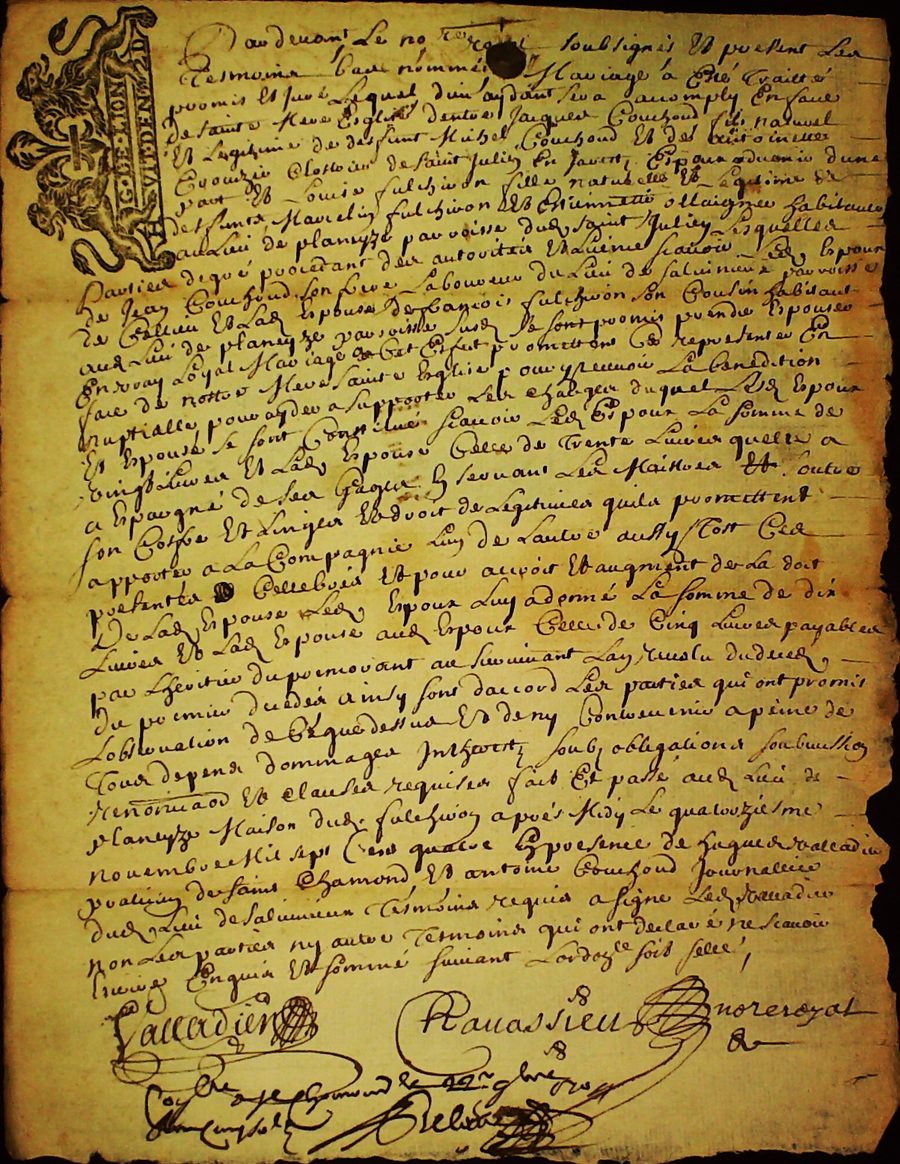 G. DE LION
HVIT DEN. 2 D
Pardevant Le no^re royal soubsignés Et present Les
Tesmoins bas nommés Mariage à Esté Traitté
promis Et Juré Lequel dieu aydant sera accomply En face
de sainte Mere Esglise dentre Jacques Couchoud fils naturel
Et Legitime de deffunt Michel Couchoud Et de Antoinette
Crouzie de saint Julien En Jarretz Espoux advenir dune
part Et Louise fulchiron fille naturelle Et Legitime de
deffunts Marcelin fulchiron Et Estiennette ollaignie habitante
au Lieu de planeyze parroisse dud saint Julien Lesquelles
Parties de gré procedant des autorités Et Licence scavoir Led Espoux
de Jean Couchoud son frere Laboureur du Lieu de salvinieux parroisse
de Cellieu Et Lad Espouse de francois fulchiron son Cousin habitant
aud Lieu de planeyze parroisse susd se sont promis prendre Espouser
En vray Loyal Mariage Et Cet Effect promettent Ce representer En
face de nostre Mere sainte Esglise pour y recevoir La benediction
nuptialle pour ayder a supporter Les Charges duquel Lesd Espoux
Et Espouse se sont Constitué scavoir Led Espoux La somme de
vingt Livres Et Lad Espouse Celle de Trente Livres quelle a
a Espargné de ses Gages En servant Les Maistres Et outre
son Coffre Et Linges Et droit de Legitimes quils promettent
apporter a La Compagnie Lun de Lautre aussy Tost Ces
presentes Cellebrés Et pour acroit Et augment de La dott
De Lad Espouse Led Espoux Luy a donné La somme de dix
Livres Et Lad Espouse aud Espoux Celle de Cinq Livres payables
par Lheritier du premorant au survivant Lan revolu dudeced
du premier decedés ainsy sont daccord Les parties qui ont promis
Lobservation de Ce que dessus Et de ny Contrevenir a peine de
Tous depens dommages Intheretz soubz obligations soubmission
renonciaons Et Clauses requises fait Et passé aud Lieu de
planeyze Maison dud fulchiron apres Midy Le quatorziesme
novembre Mil sept Cens quatre En presence de hugues valladier
praticien de saint Chamond Et antoine Couchoud Journallier
dud Lieu de salvinieux Tesmoins requis a signe Led valladier
non Les parties ny autre Tesmoins qui ont declaré ne scavoir
Escrire Enquis Et sommé suivant Lordon^ce soit sellé
Valladier Ravassieu no^re royal
Con^lle a S^t Chamond le 22^e 9^bre